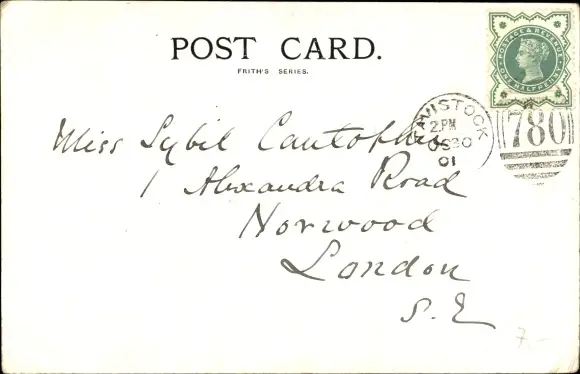 POST CARD.
FRITH'S SERIES.
POSTAGE & REVENUE
ONE HALFPENNY
TAVISTOCK
2.PM
OC 30
01
780
Miss Sybil Cautopher
1 Alexandra Road
Norwood
London
S.E
7.-